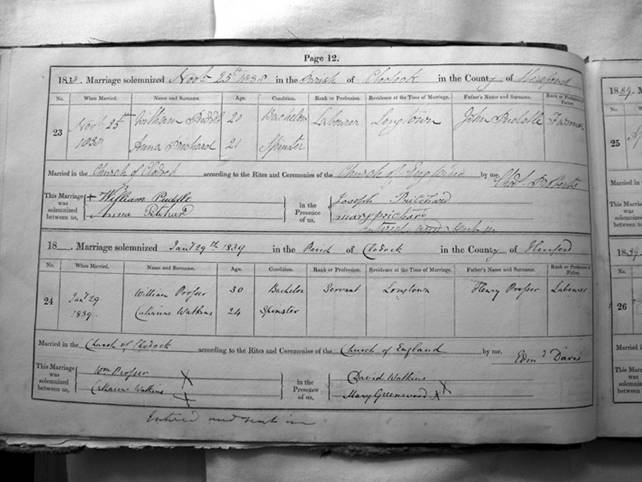 Page 12.
1838. Marriage solemnized Novbr 25th 1838 in the Parish of Clodock in the County of Hereford
No. When Married. Name and Surname. Age. Condition. Rank or Profession. Residence at the Time of Marriage. Father's Name and Surname. Rank or Profession of Father.
23 Novbr 25th William 20 Bachelor Labourer Longtown John Farmer
1838 Anna Prichard 21 Spinster
Married in the Church of Clodock according to the Rites and Ceremonies of the Church of England by me,
This Marriage was solemnized between us, + William in the Presence of us, Joseph Pritchard
Anna Mary Prichard
18 . Marriage solemnized Jany 29th 1839 in the Parish of Clodock in the County of Hereford
No. When Married. Name and Surname. Age. Condition. Rank or Profession. Residence at the Time of Marriage. Father's Name and Surname. Rank or Profession of Father.
24 Jany 29 William Prosser 30 Bachelor Servant Longtown Henry Prosser Labourer
1839. Catharine Watkins 24 Spinster
Married in the Church of Clodock according to the Rites and Ceremonies of the Church of England by me, Edmd Davis
This Marriage was solemnized between us, Wm Prosser X in the Presence of us, David Watkins
Catharine Watkins X Mary Greenwood X
Entered and sent in
1839.
No.
25
1839.
No.
26